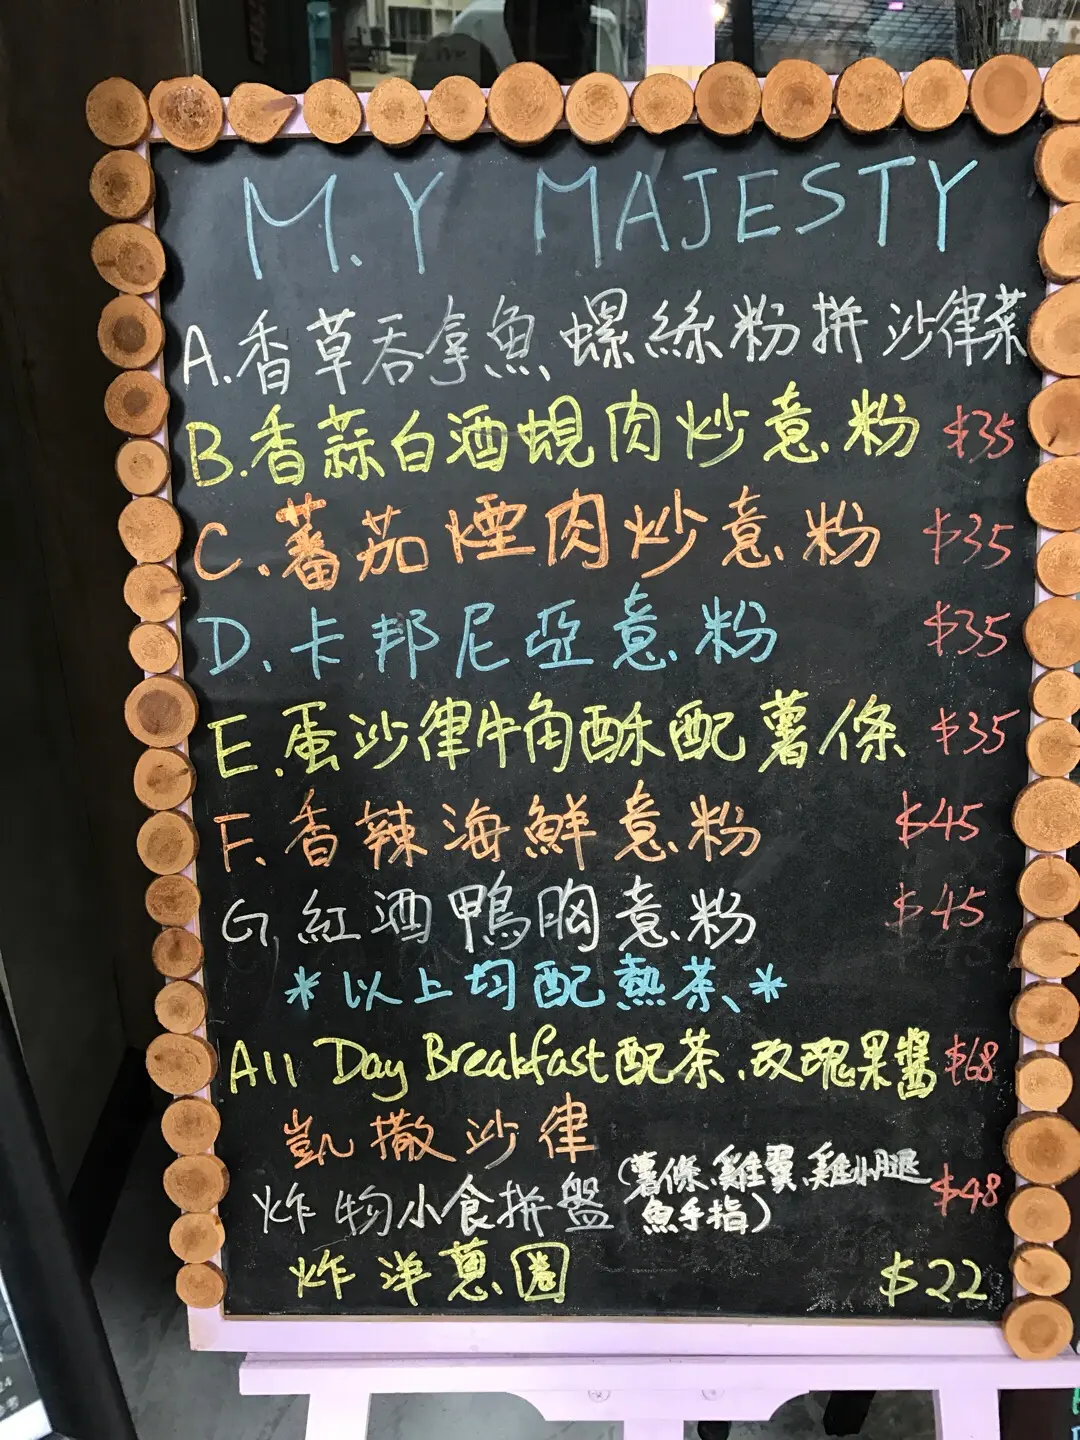 M.Y MAJESTY
A.香草吞拿魚螺絲粉拼沙律菜
B.香蒜白酒蜆肉炒意粉 $35
C.蕃茄煙肉炒意粉 $35
D.卡邦尼亞意粉 $35
E.蛋沙律牛角酥配薯條 $35
F.香辣海鮮意粉 $45
G.紅酒鴨胸意粉 $45
*以上均配熱茶*
All Day Breakfast配茶.玫瑰果醬 $68
凱撒沙律
炸物小食拼盤(薯條、雞翼、雞小腿 $48
魚手指)
炸洋蔥圈 $22